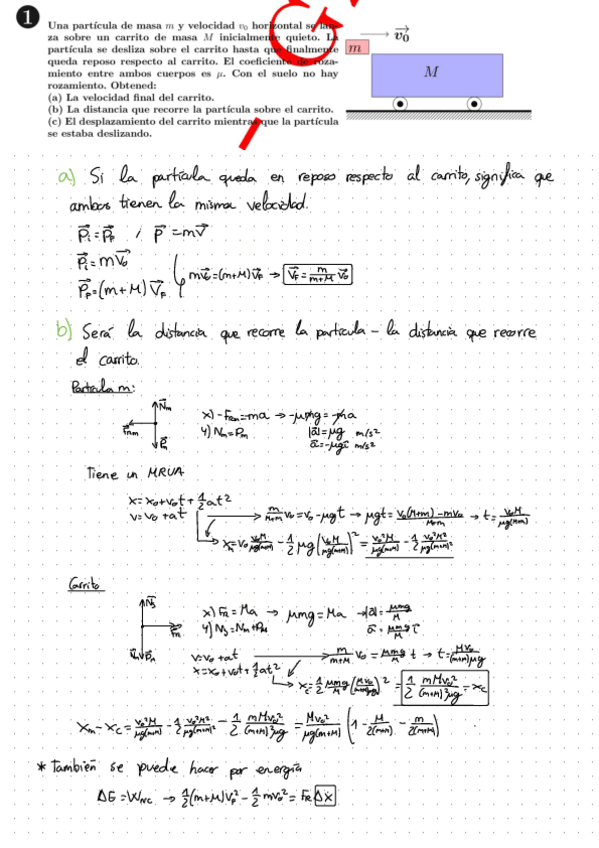 1
Una partícula de masa m y velocidad v₀ horizontal se lan-
za sobre un carrito de masa M inicialmente quieto. La
partícula se desliza sobre el carrito hasta que finalmente
queda reposo respecto al carrito. El coeficiente de roza-
miento entre ambos cuerpos es μ. Con el suelo no hay
rozamiento. Obtened:
(a) La velocidad final del carrito.
(b) La distancia que recorre la partícula sobre el carrito.
(c) El desplazamiento del carrito mientras que la partícula
se estaba deslizando.
v₀
m
M
G
a) Si la partícula queda en reposo respecto al carrito, significa que
ambos tienen la misma velocidad.
p⃗ᵢ = p⃗_F / p⃗ = mv⃗
p⃗ᵢ = mv⃗₀
p⃗_F = (m+M) v⃗_F
mv⃗₀ = (m+M) v⃗_F → v⃗_F = m/(m+M) v⃗₀
b) Será la distancia que recorre la partícula - la distancia que recorre
el carrito.
Partícula m:
N⃗m
F⃗Rm
P⃗m
x) -FRm = ma → -μmg = ma
y) Nm = Pm
|a⃗| = μg m/s²
a⃗ = -μg i⃗ m/s²
Tiene un MRUA
x = x₀ + v₀t + 1/2 at²
v = v₀ + at
m/(m+M) v₀ = v₀ - μgt → μgt = (v₀(M+m) - mv₀)/(M+m) → t = v₀M/(μg(M+m))
xm = v₀ v₀M/(μg(M+m)) - 1/2 μg (v₀M/(μg(M+m)))² = v₀²M/(μg(M+m)) - 1/2 v₀²M²/(μg(M+m)²)
Carrito
x) FR = Ma → μmg = Ma → |a⃗| = μmg/M
y) Ns = Nm + PM
a⃗ = μmg/M i⃗
v = v₀ + at
x = x₀ + v₀t + 1/2 at²
m/(m+M) v₀ = μmg/M t → t = Mv₀/((m+M)μg)
xc = 1/2 μmg/M (Mv₀/((m+M)μg))² = 1/2 mMv₀²/((m+M)²μg) = xc
xm - xc = v₀²M/(μg(m+M)) - 1/2 v₀²M²/(μg(m+M)²) - 1/2 mMv₀²/((m+M)²μg) = Mv₀²/(μg(m+M)) (1 - M/(2(m+M)) - m/(2(m+M)))
* También se puede hacer por energía
ΔE = W_NC → 1/2 (m+M)v_F² - 1/2 mv₀² = F_R Δx